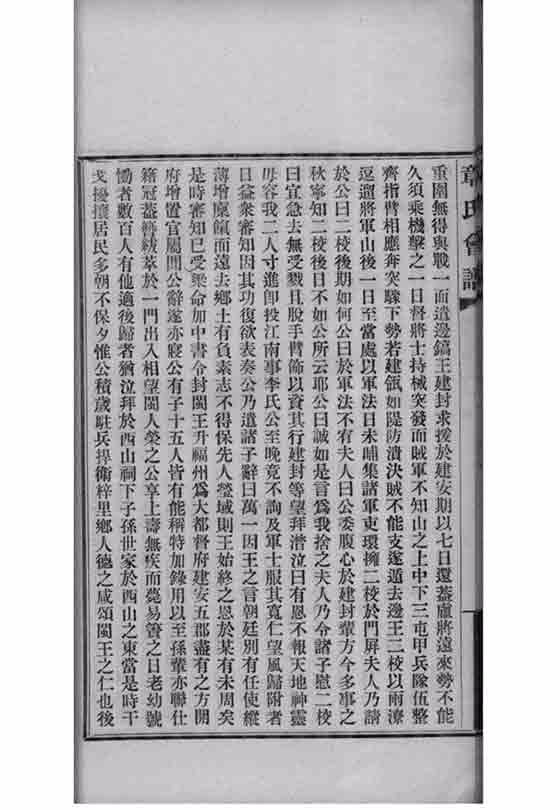 章氏會譜
重圍無得與戰一面遣邊鎬王建封求援於建安期以七日還葢盧將遠來勢不能
久須乘機擊之一日督將士持械突發而賊軍不知山之上中下三屯甲兵隊伍整
齊指臂相應奔突驟下勢若建瓴如隄防潰決賊不能支遂遁去邊王二校以雨潦
逗遛將軍山後一日至當處以軍法日未晡集諸軍吏環擁二校於門屏夫人乃請
於公曰二校後期如何公曰於軍法不有夫人曰公委腹心於建封輩方今多事之
秋寧知二校後日不如公所云耶公曰誠如是言爲我捨之夫人乃令諸子慰二校
曰宜急去無受戮且脫手臂佈以資其行建封等望拜潸泣曰有恩不報天地神靈
毋容我二人寸進卽投江南事李氏公至晚竟不詢及軍士服其寬仁望風歸附者
日益衆審知因其功復欲表奏公乃遺諸子辭曰萬一因王之言朝廷別有任使縱
薄增廩餼而遠去鄉土有負素志不得保先人塋域則王始終之恩於某有未周矣
是時審知已受梁命加中書令封閩王升福州爲大都督府建安五郡盡有之方開
府增置官屬聞公辭遂亦寢公有子十五人皆有能稱特加錄用以至孫輩亦聯仕
籍冠葢簪紱萃於一門出入相望閩人榮之公享上壽無疾而薨易簀之日老幼號
慟者數百人有他適後歸者猶泣拜於西山祠下子孫世家於西山之東當是時干
戈擾攘居民多朝不保夕惟公積歲駐兵捍衛梓里鄉人德之咸頌閩王之仁也後